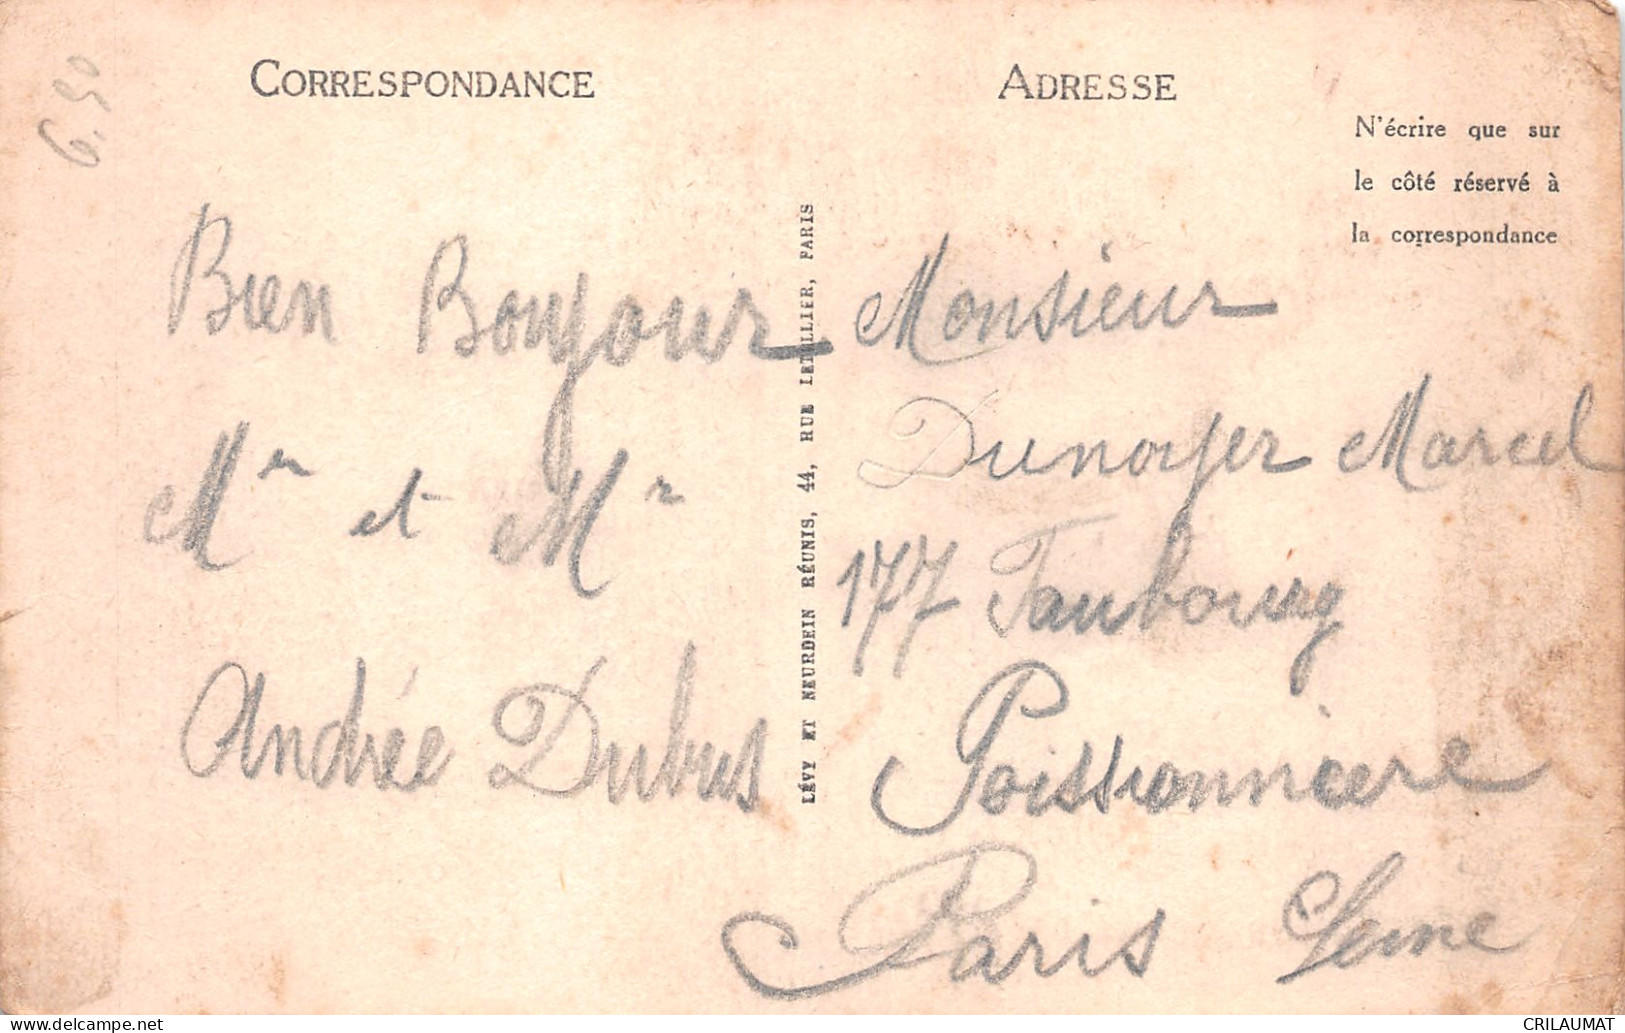 6.50
CORRESPONDANCE
Bien Bonjour
Mr et Mr
Andrée Dubus
LÉVY ET NEURDEIN RÉUNIS, 44, RUE LETELLIER, PARIS
ADRESSE
N'écrire que sur
le côté réservé à
la correspondance
Monsieur
Dunoyer Marcel
177 Faubourg
Poissionniere
Paris Seine
CRILAUMAT